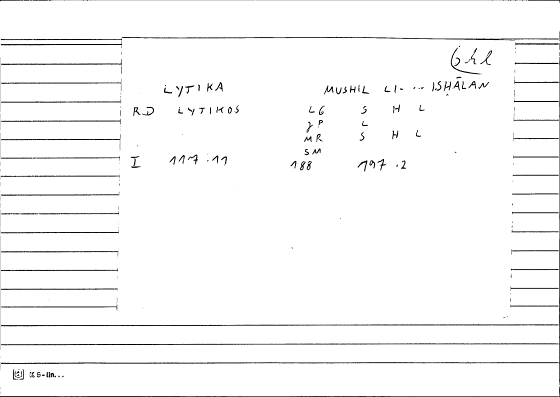 shl
LYTIKA MUSHIL LI- ... ISHĀLAN
RD LYTIKOS LG S H L
JP L
MR S H L
SM
I 117 : 11 188 197 . 2